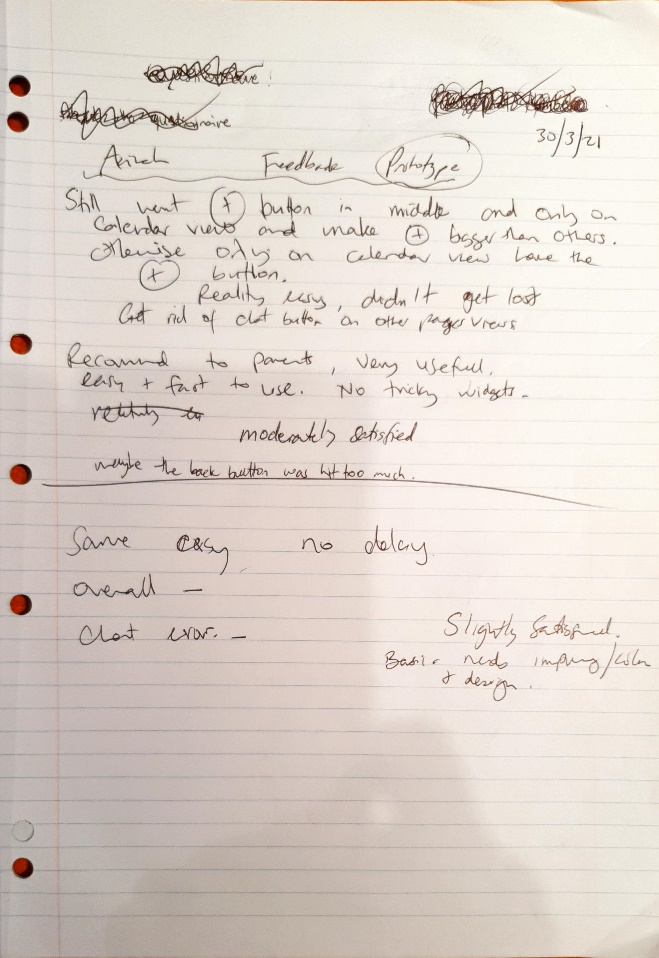 30/3/21
Feedback Prototype
Still want + button in middle and only on
Calendar view and make + bigger than others.
otherwise only on calendar view have the
+ button.
Reality easy, didn't get lost
Get rid of chat button on other pages views
Recommend to parents, very useful.
easy + fast to use. No tricky widgets.
moderately satisfied
maybe the back button was hit too much.
Same easy no delay.
overall –
Chat error. –
Slightly satisfied.
Basic needs improving/color
+ design.